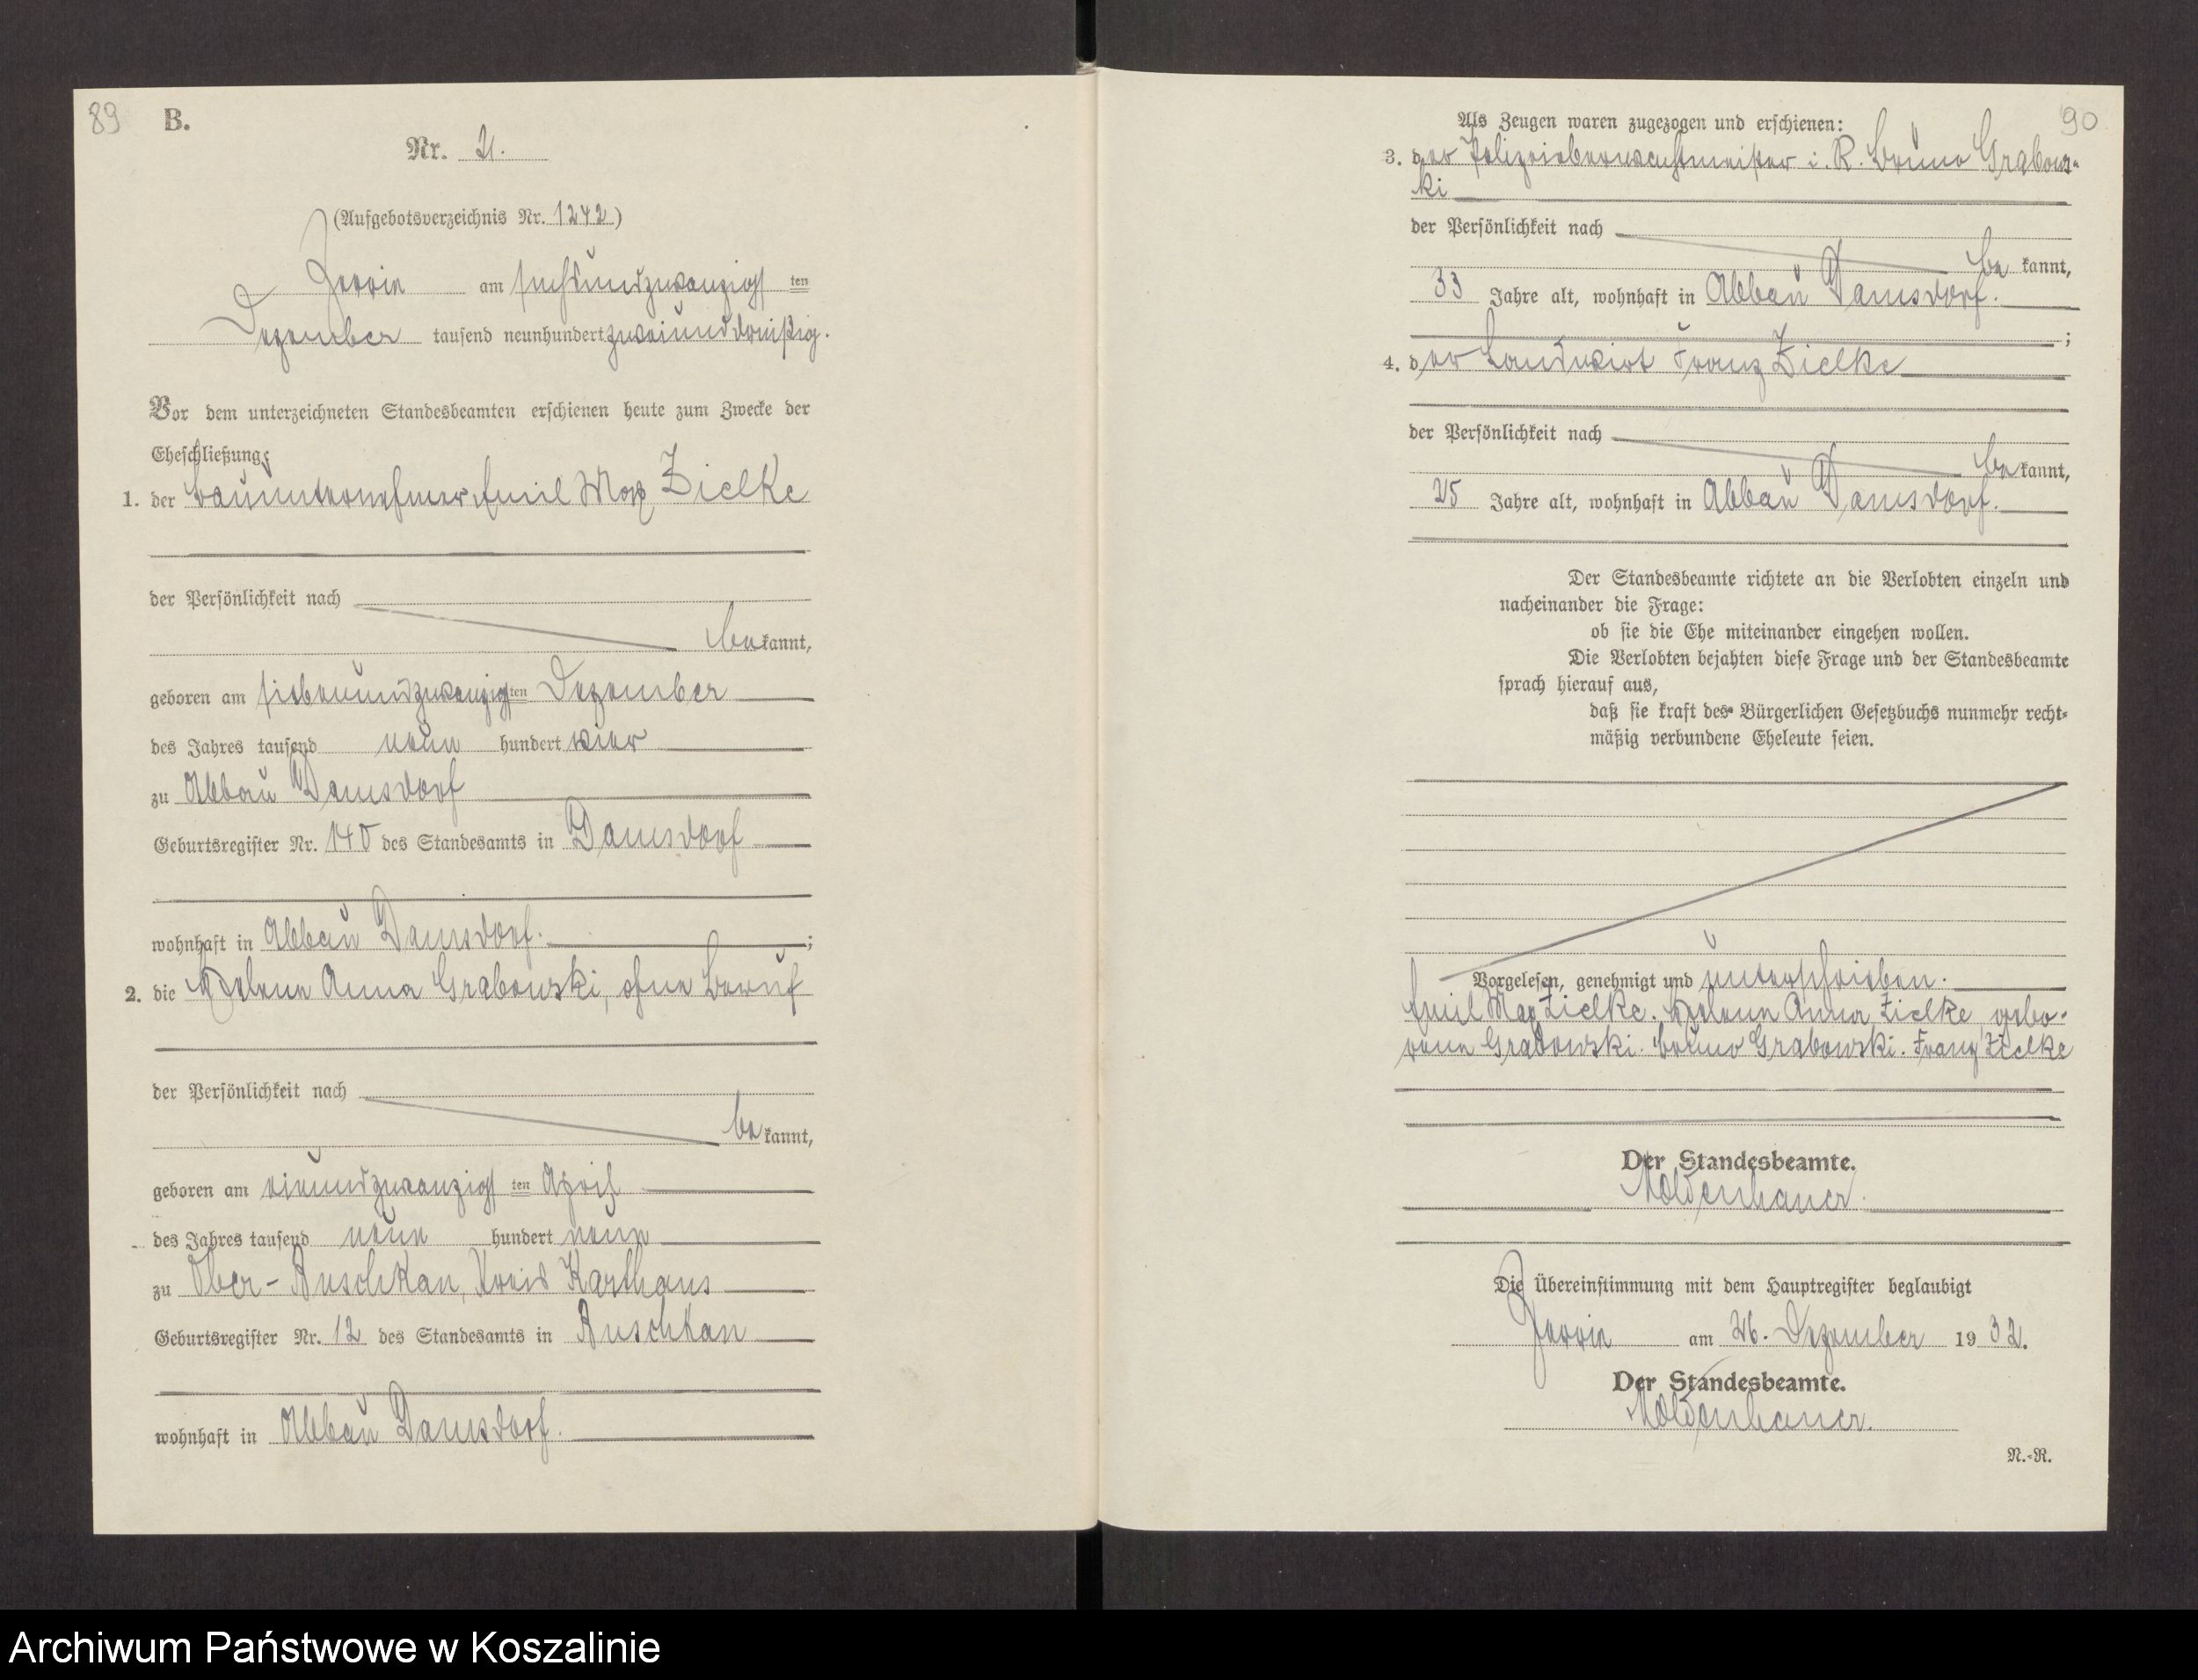 89
B.
Nr. 21.
(Aufgebotsverzeichnis Nr. 1242)
Jerrin am sechsundzwanzigsten
Dezember tausend neunhundert zweiunddreißig.
Vor dem unterzeichneten Standesbeamten erschienen heute zum Zwecke der
Eheschließung:
1. der Bauunternehmer Emil Max Zielke
der Persönlichkeit nach
bekannt,
geboren am siebenundzwanzigsten Dezember
des Jahres tausend neun hundert vier
zu Abbau Damsdorf
Geburtsregister Nr. 140 des Standesamts in Damsdorf
wohnhaft in Abbau Damsdorf. ;
2. die Helene Anna Grabowski, ohne Beruf
der Persönlichkeit nach
bekannt,
geboren am einundzwanzigsten April
des Jahres tausend neun hundert neun
zu Ober-Buschkau, Kreis Karthaus
Geburtsregister Nr. 12 des Standesamts in Buschkau
wohnhaft in Abbau Damsdorf.
90
Als Zeugen waren zugezogen und erschienen:
3. der Polizeioberwachtmeister i. R. Bruno Grabows-
ki
der Persönlichkeit nach
bekannt,
33 Jahre alt, wohnhaft in Abbau Damsdorf.
;
4. der Landwirt Franz Zielke
der Persönlichkeit nach
bekannt,
25 Jahre alt, wohnhaft in Abbau Damsdorf.
Der Standesbeamte richtete an die Verlobten einzeln und
nacheinander die Frage:
ob sie die Ehe miteinander eingehen wollen.
Die Verlobten bejahten diese Frage und der Standesbeamte
sprach hierauf aus,
daß sie kraft des Bürgerlichen Gesetzbuchs nunmehr recht-
mäßig verbundene Eheleute seien.
Vorgelesen, genehmigt und unterschrieben.
Emil Max Zielke. Helene Anna Zielke gebo-
rene Grabowski. Bruno Grabowski. Franz Zielke
Der Standesbeamte.
Moldenhauer.
Die Übereinstimmung mit dem Hauptregister beglaubigt
Jerrin am 26. Dezember 1932.
Der Standesbeamte.
Moldenhauer.
N.-R.
Archiwum Państwowe w Koszalinie